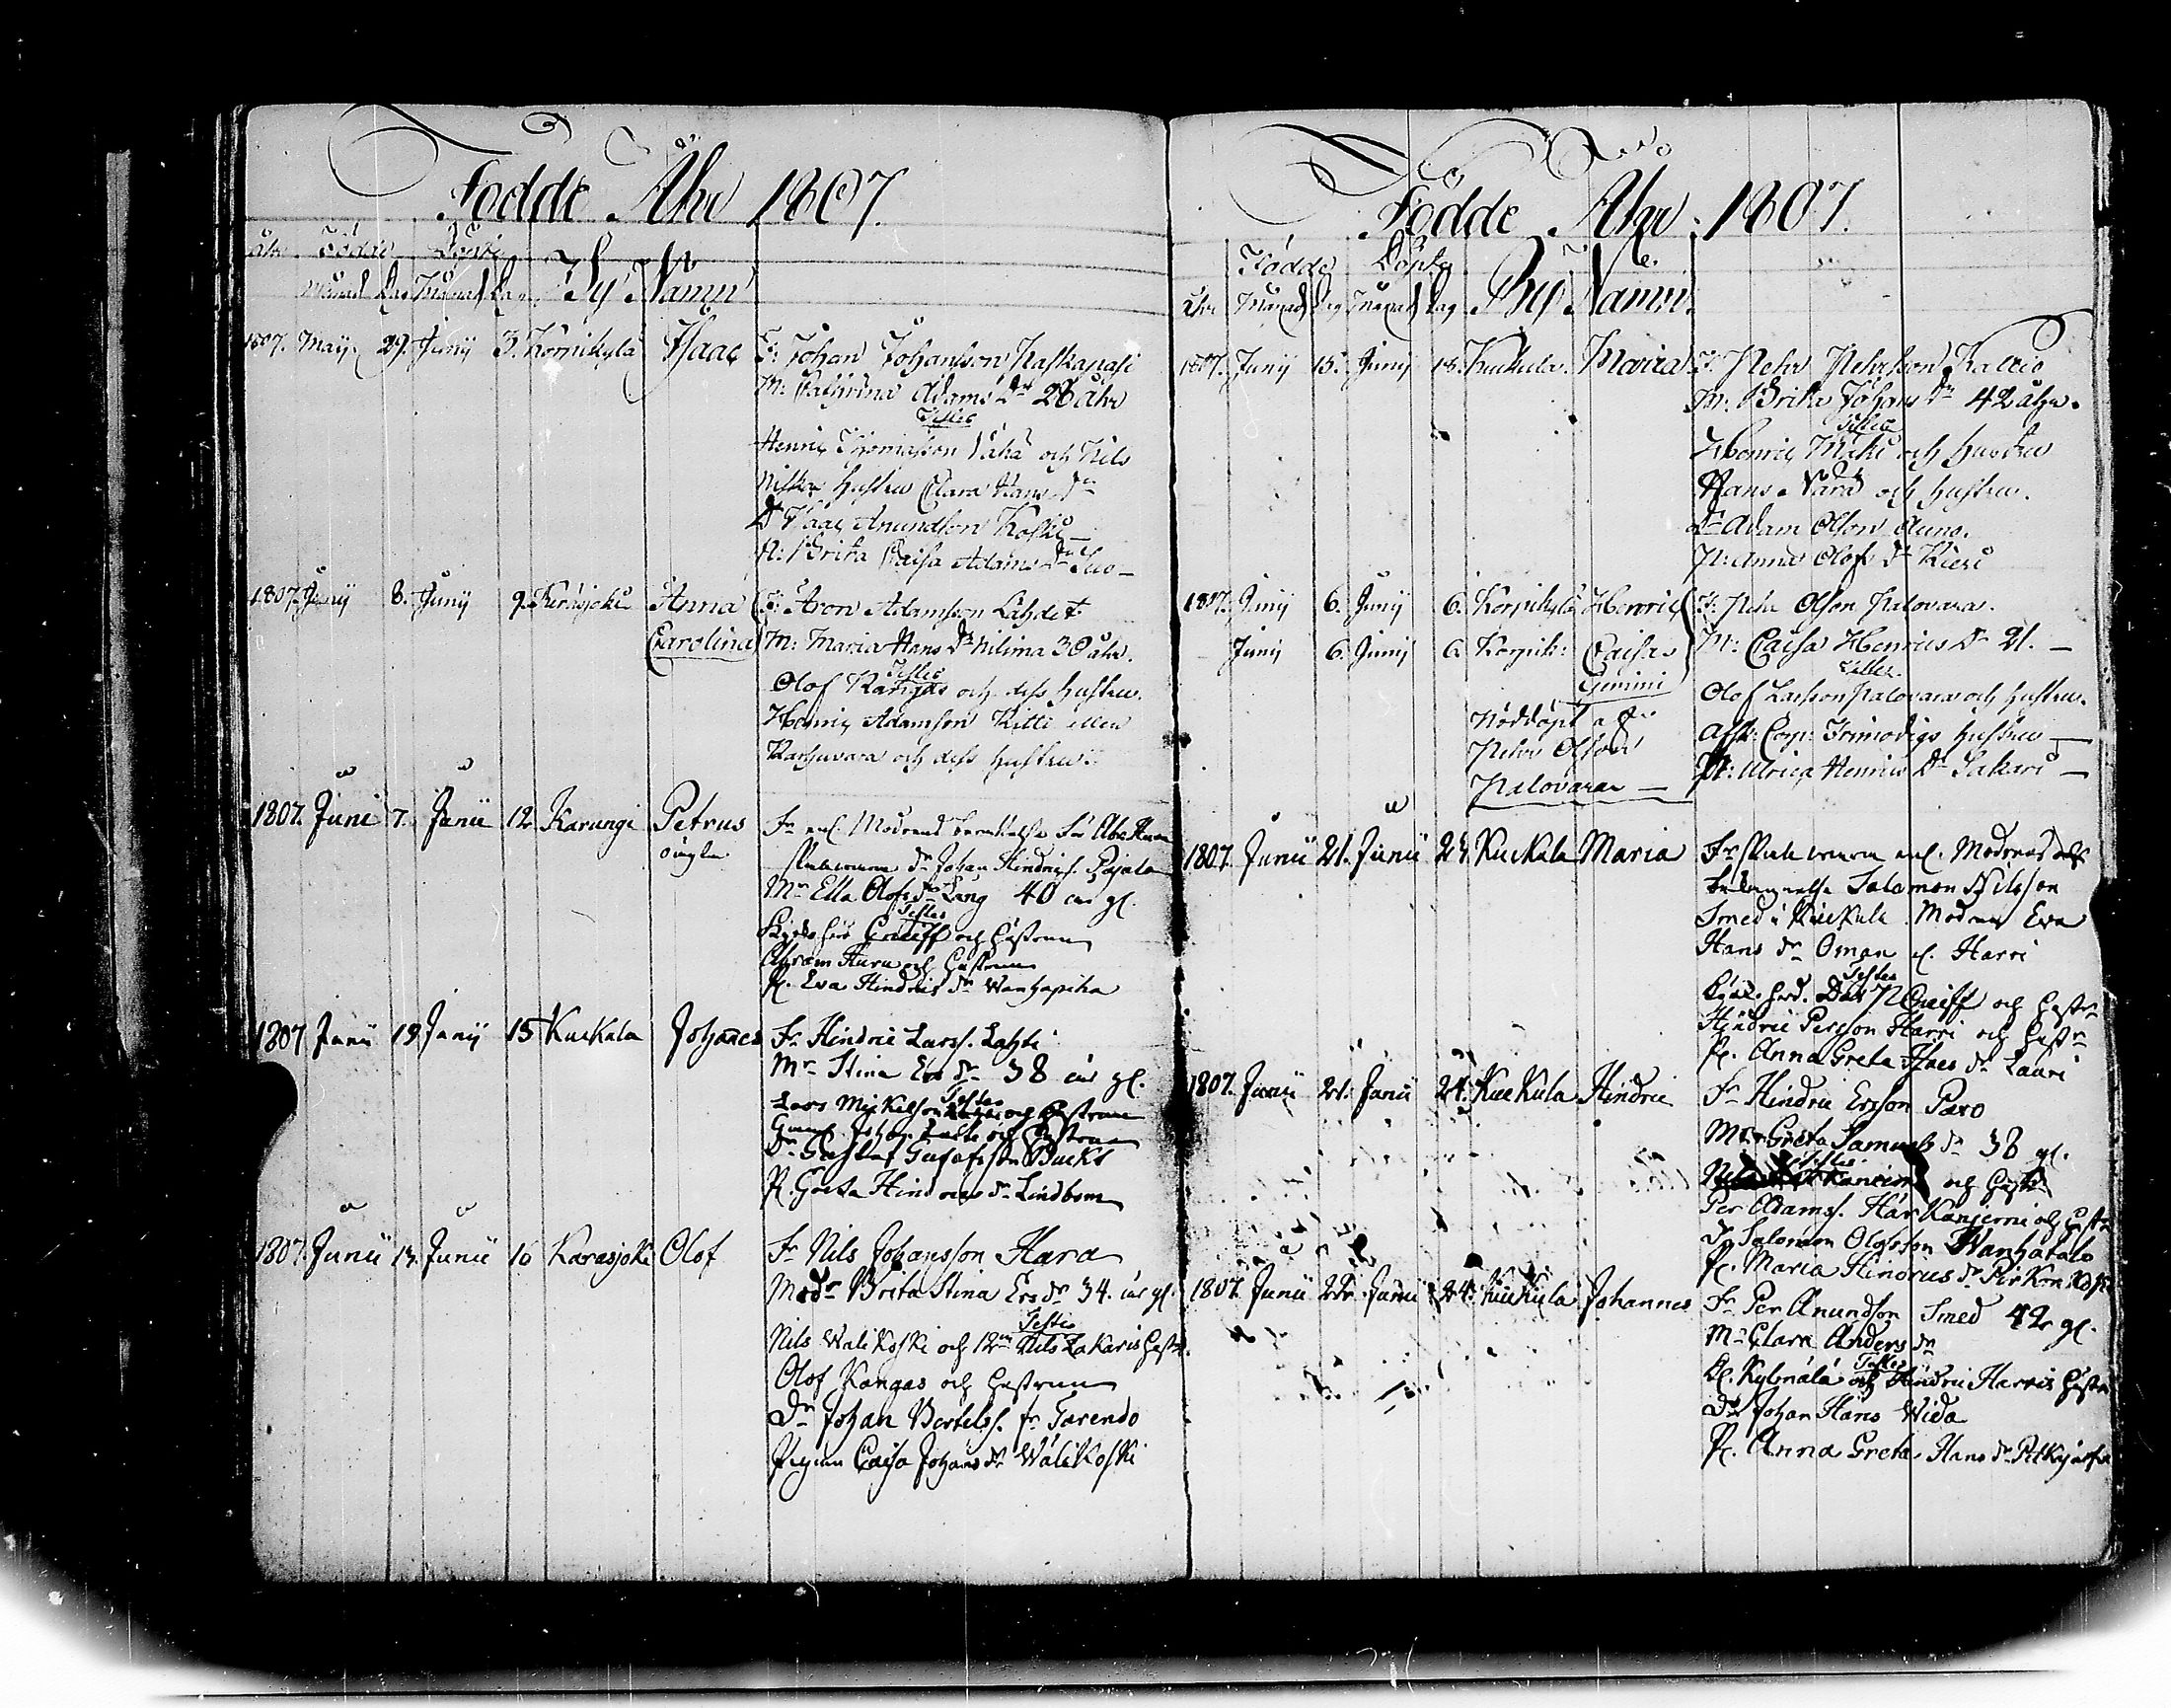 Födde Åhr 1807.
Åhr Födde Döpte By Namn
Månad Dag Månad Dag
1807. Maij 29. Junij 3. Korpikylä Isaac F: Johan Johansson Naskapasi
M: Cathrina Adams Dr 26 åhr
Testes
Henric Thomasson Vaha och Nils
Niska hustru Clara Hans Dr
Dr Isaac Anundson Koski
P: Brita Caisa Adams Dr
1807. Junij 8. Junij 9. Anna F: Aron Adamsson Lahdet
Carolina M: Maria Hans Dr Nilima 30 åhr.
Testes
Olof Kangas och dess hustru.
Henric Adamson Kitti eller
Karhuvara och dess hustru
1807. Juni 7. Junii 12. Karungi Petrus Fr enl. Modrens berättelse
oägta Johan Hindrics. Rajala
Mr Ella Olofs dr Lang 40 år gl.
Testes
Greiff och hustrun
Abram Auru och hustrun
P. Eva Hindrics dr Wanhapiha
1807 Junii 13 Junij 15 Kuckula Johannes Fr Hindric Larss. Lahti
Mr Stina Ers dr 38 år gl.
Testes
Lars Mickelson och hustrun
Johan och hustrun
Dr Gustaf Gustafsson Bucht
P. Greta Hindrics dr Lindbom
1807. Junii 13. Junii 16 Karasjoki Olof Fr Nils Johansson Hara
Modr Brita Stina Ers dr 34. år gl.
Testes
Nils Walikoski och Nils Zakaris hustr.
Olof Kangas och hustrun
Dr Johan Bertelss. fr Tärendö
Pigan Caisa Johans dr Wälikoski
Födde Åhr 1807.
Födde Döpte
Åhr Månad Dag Månad Dag By Namn.
1807. Junij 15. Junij 18. Kuckula. Maria F. Pehr Pehrsson Kallio
M: Brita Johans Dr 42 åhr.
Testes
Henric Mäki och hustru
Hans Vara och hustru.
Dr Adam Olson Auno.
P: Anna Olofs Dr Kieri
1807. Junij 6. Junij 6. Korpikylä Henric F. Pehr Olson Palovara.
Junij 6. Junij 6. Korpik: Caisa M: Caisa Henrics Dr 21. —
Gemini Testes
Olof Larsson Palovara och hustru.
Nöddöpt af Afsk: Corp: Frimodigs hustru —
Pehr Olson P: Ulrica Henrics Dr Sakari —
Palovara —
1807. Junii 21. Junii 24. Kuckula Maria Fr skall wara enl. Modrens
bekännelse Salomon Nilsson
Smed i Kuckula. Modren Eva
Hans dr Oman f. Harri
Testes
Greiff och hustr
Hindric Persson Harri och hustr
P. Anna Greta Isacs dr Lauri
1807. Junii 21. Junii 24. Kuckula Hindric Fr Hindric Ersson Paro
Mr Greta Samuels dr 38 gl.
Testes
och hustr
Per Adamss. Harkanjerni och hustr
Dr Salomon Olofsson Wanhatalo
P. Maria Hindrics dr
1807. Junii 22. Junii 24. Kuckula Johannes Fr Per Anundson Smed 42 gl.
Mr Clara Anders dr
Testes
Kylmälä och Hindric Harris hustr
Dr Johan Hans Wida
P. Anna Greta Hans dr Pitkäjärfvi